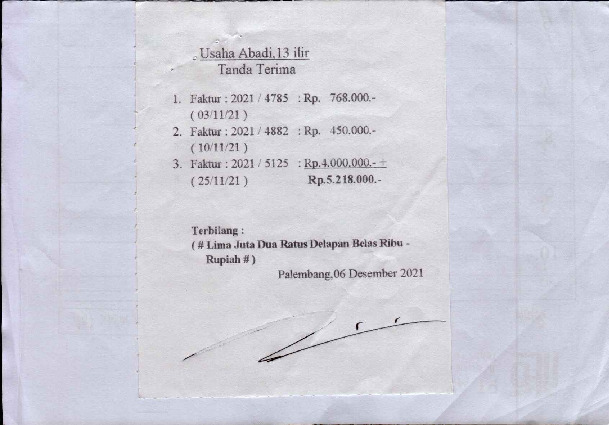 Usaha Abadi,13 ilir
Tanda Terima
1. Faktur : 2021 / 4785 : Rp. 768.000.-
( 03/11/21 )
2. Faktur : 2021 / 4882 : Rp. 450.000.-
( 10/11/21 )
3. Faktur : 2021 / 5125 : Rp.4.000,000.- +
( 25/11/21 ) Rp.5.218.000.-
Terbilang :
( # Lima Juta Dua Ratus Delapan Belas Ribu -
Rupiah # )
Palembang,06 Desember 2021